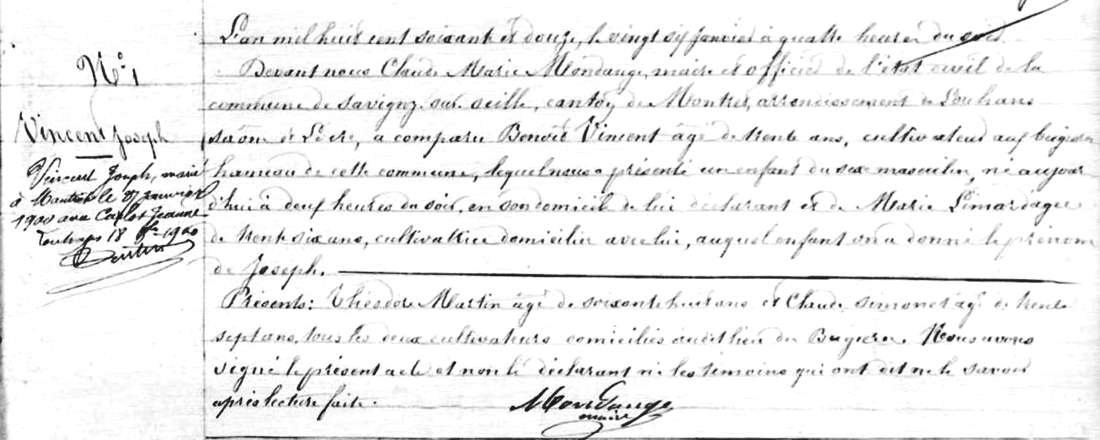 N° 1
Vincent Joseph
Vincent Joseph, marié
à Mantes le 27 Janvier
1900 avec Carlot Jeanne
18 1900
L'an mil huit cent soixant et douze, le vingt janvier à quatre heures du soir
Devant nous Claude Marie Mondange, maire et officier de l'état civil de la
commune de Savigny sur Seille, canton de Montret, arrondissement de Louhans
Saône et Loire, a comparu Benoît Vincent âgé de trente ans, cultivateur aux Bugueren
hameau de cette commune, lequel nous a présenté un enfant du sexe masculin, né aujour
d'hui à deux heures du soir, en son domicile de lui déclarant et de Marie Limard âgée
de trente six ans, cultivatrice domiciliée avec lui, auquel enfant on a donné le prénom
de Joseph.
Présents: Théodore Martin âgé de soixante huit ans et Claude Simonet âgé de trente
sept ans, tous les deux cultivateurs domiciliés audit lieu du. Nous avons
signé le présent acte et non le déclarant ni les témoins qui ont dit ne le savoir
après lecture faite.
Mondange
maire